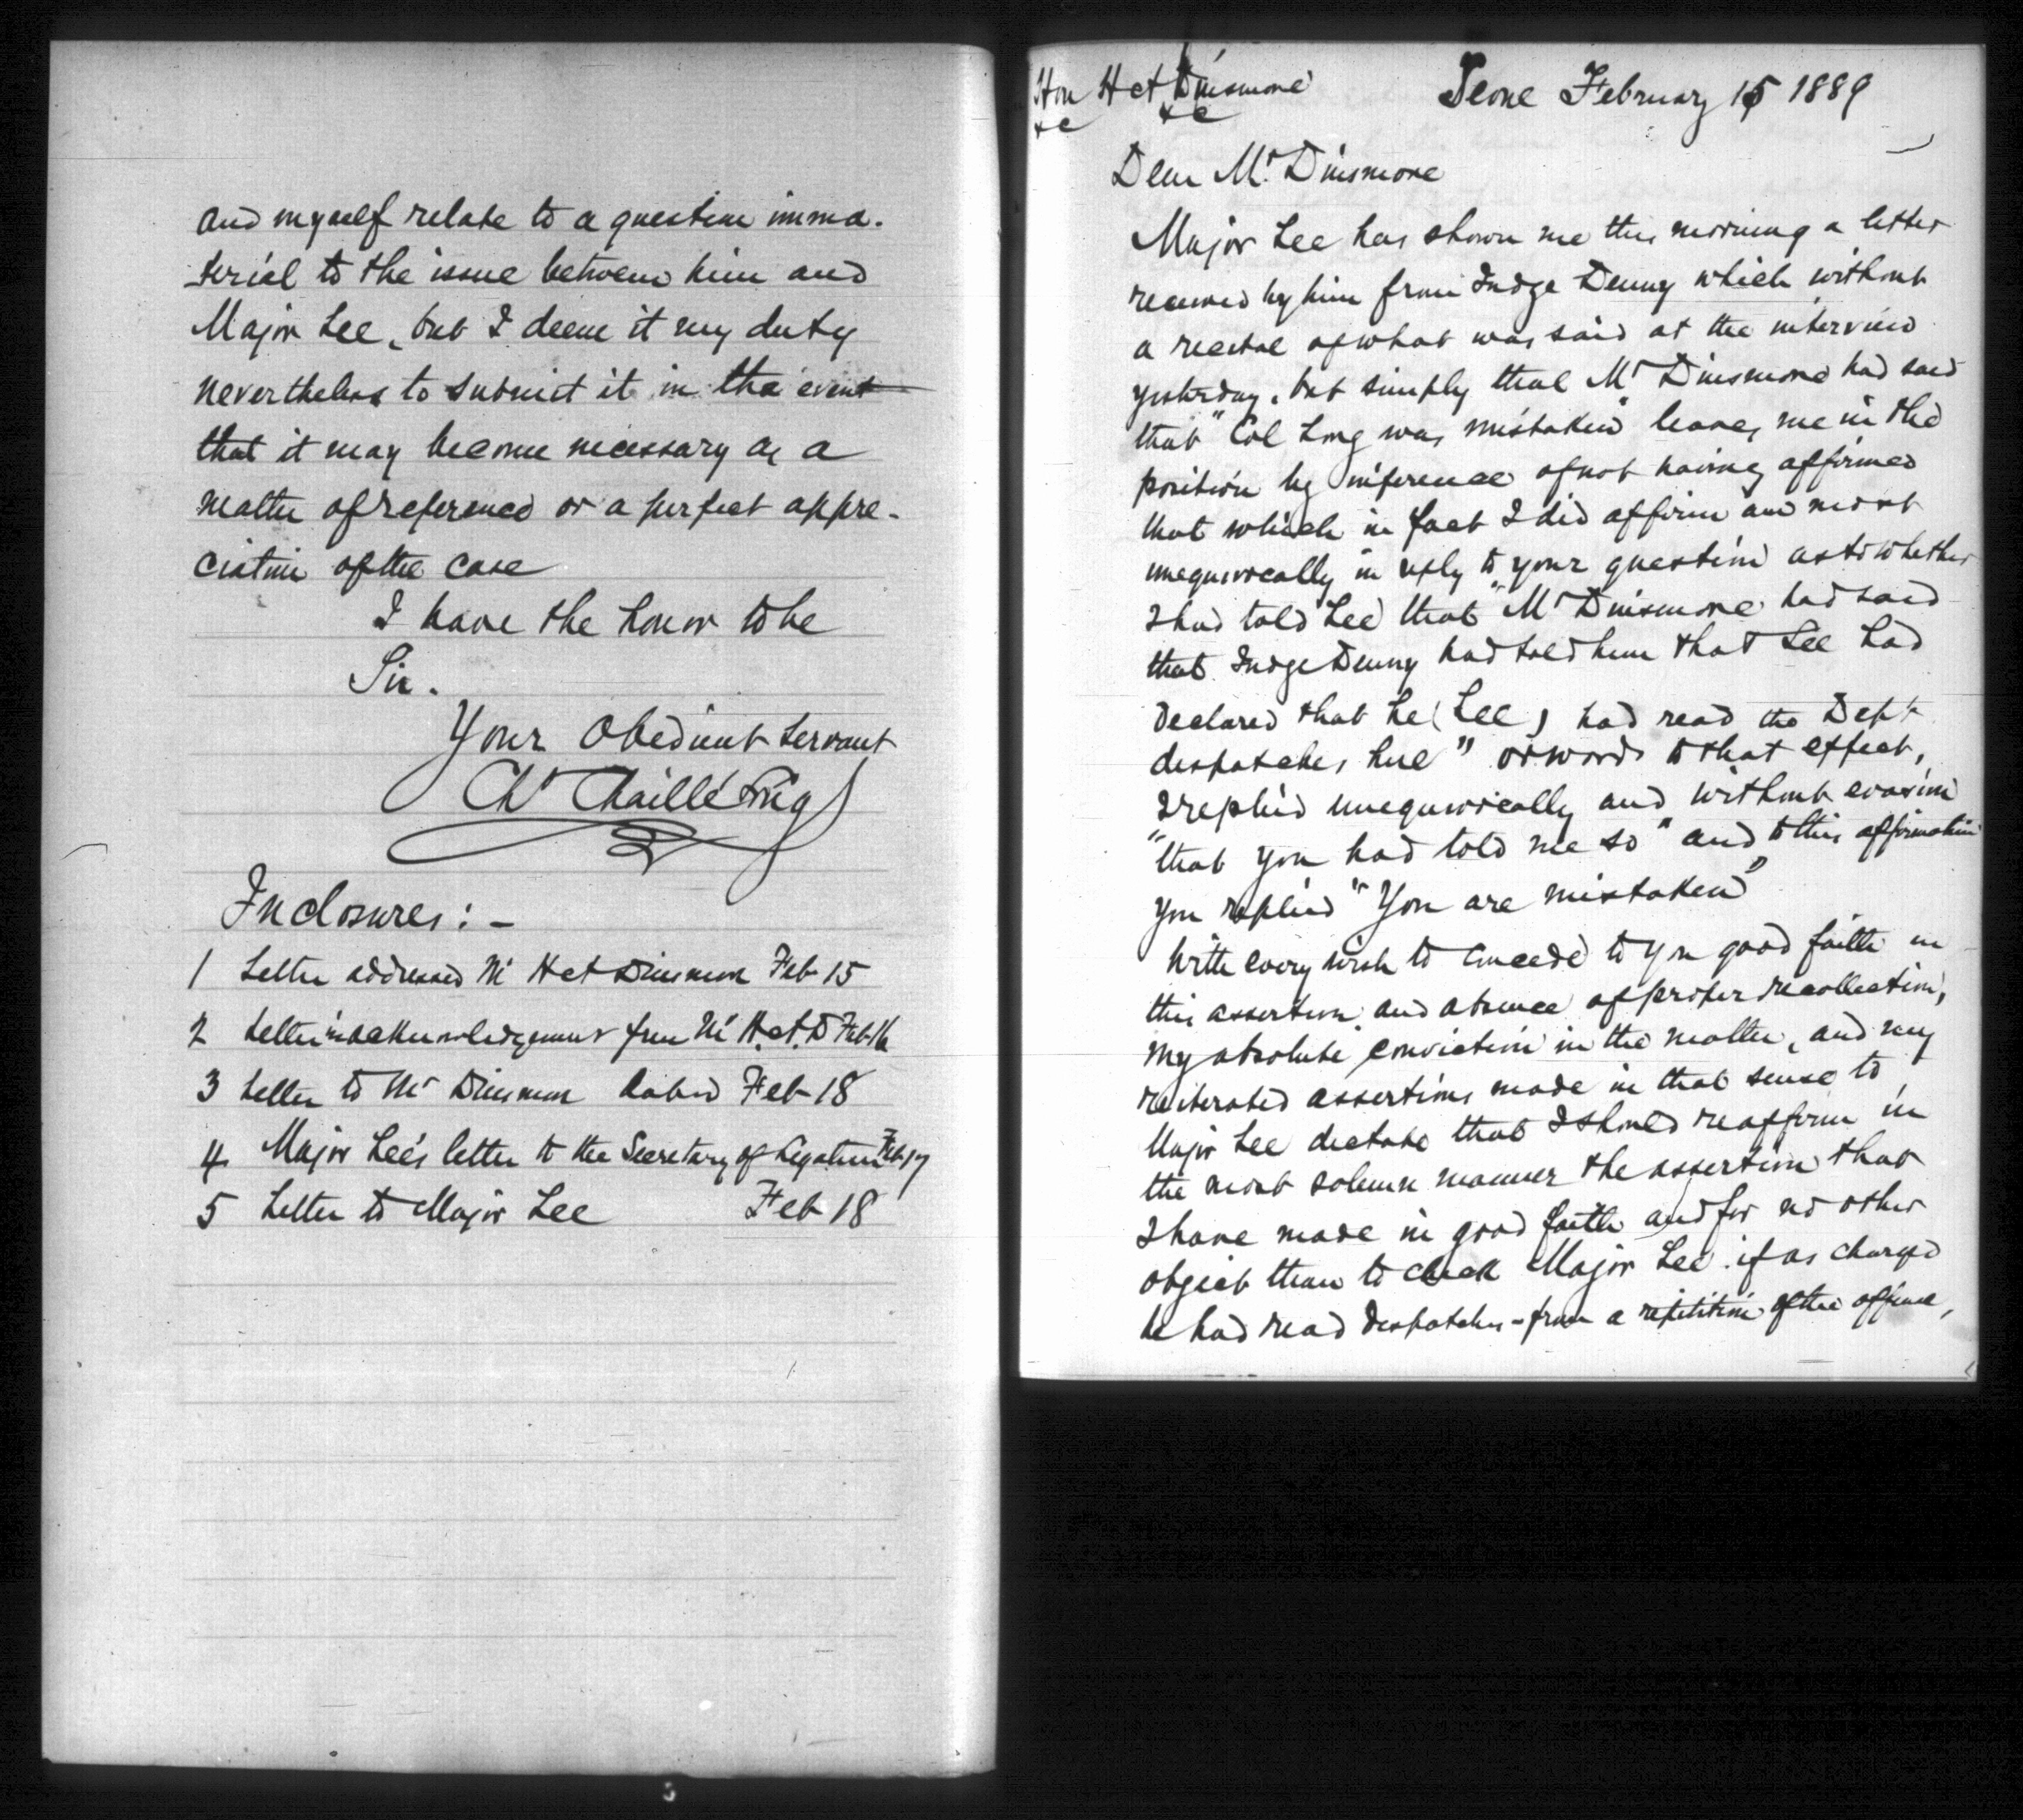 and myself relate to a question imma-
terial to the issue between him and
Major Lee, but I deem it my duty
nevertheless to submit it in the event
that it may become necessary as a
matter of reference or a perfect appre-
ciation of the case
I have the honor to be
Sir.
Your Obedient Servant
Ch Chaillé Long
Inclosures: -
1 Letter addressed Mr H A Dinsmore Feb 15
2 Letter in acknowledgement from Mr H. A. D Feb 16
3 Letter to Mr Dinsmore dated Feb 18
4 Major Lee's letter to the Secretary of Legation Feb 17
5 Letter to Major Lee Feb 18
Hon H A Dinsmore Seoul February 15 1889
&c &c
Dear Mr Dinsmore
Major Lee has shown me this morning a letter
received by him from Judge Denny which without
a recital of what was said at the interview
yesterday, but simply that Mr Dinsmore had said
that "Col Long was mistaken" leaves me in the
position by inference of not having affirmed
that which in fact I did affirm and most
unequivocally in reply to your question as to whether
I had told Lee that "Mr Dinsmore had said
that Judge Denny had told him that Lee had
declared that he (Lee) had read the Dept
despatches here" or words to that effect,
I replied unequivocally and without evasion
"that you had told me so" and to this affirmation
you replied "You are mistaken"
With every wish to concede to you good faith in
this assertion and absence of proper recollection,
my absolute conviction in the matter, and my
reiterated assertions made in that sense to
Major Lee dictate that I should reaffirm in
the most solemn manner the assertion that
I have made in good faith and for no other
object than to check Major Lee if as charged
he had read despatches - from a repetition of the offence,